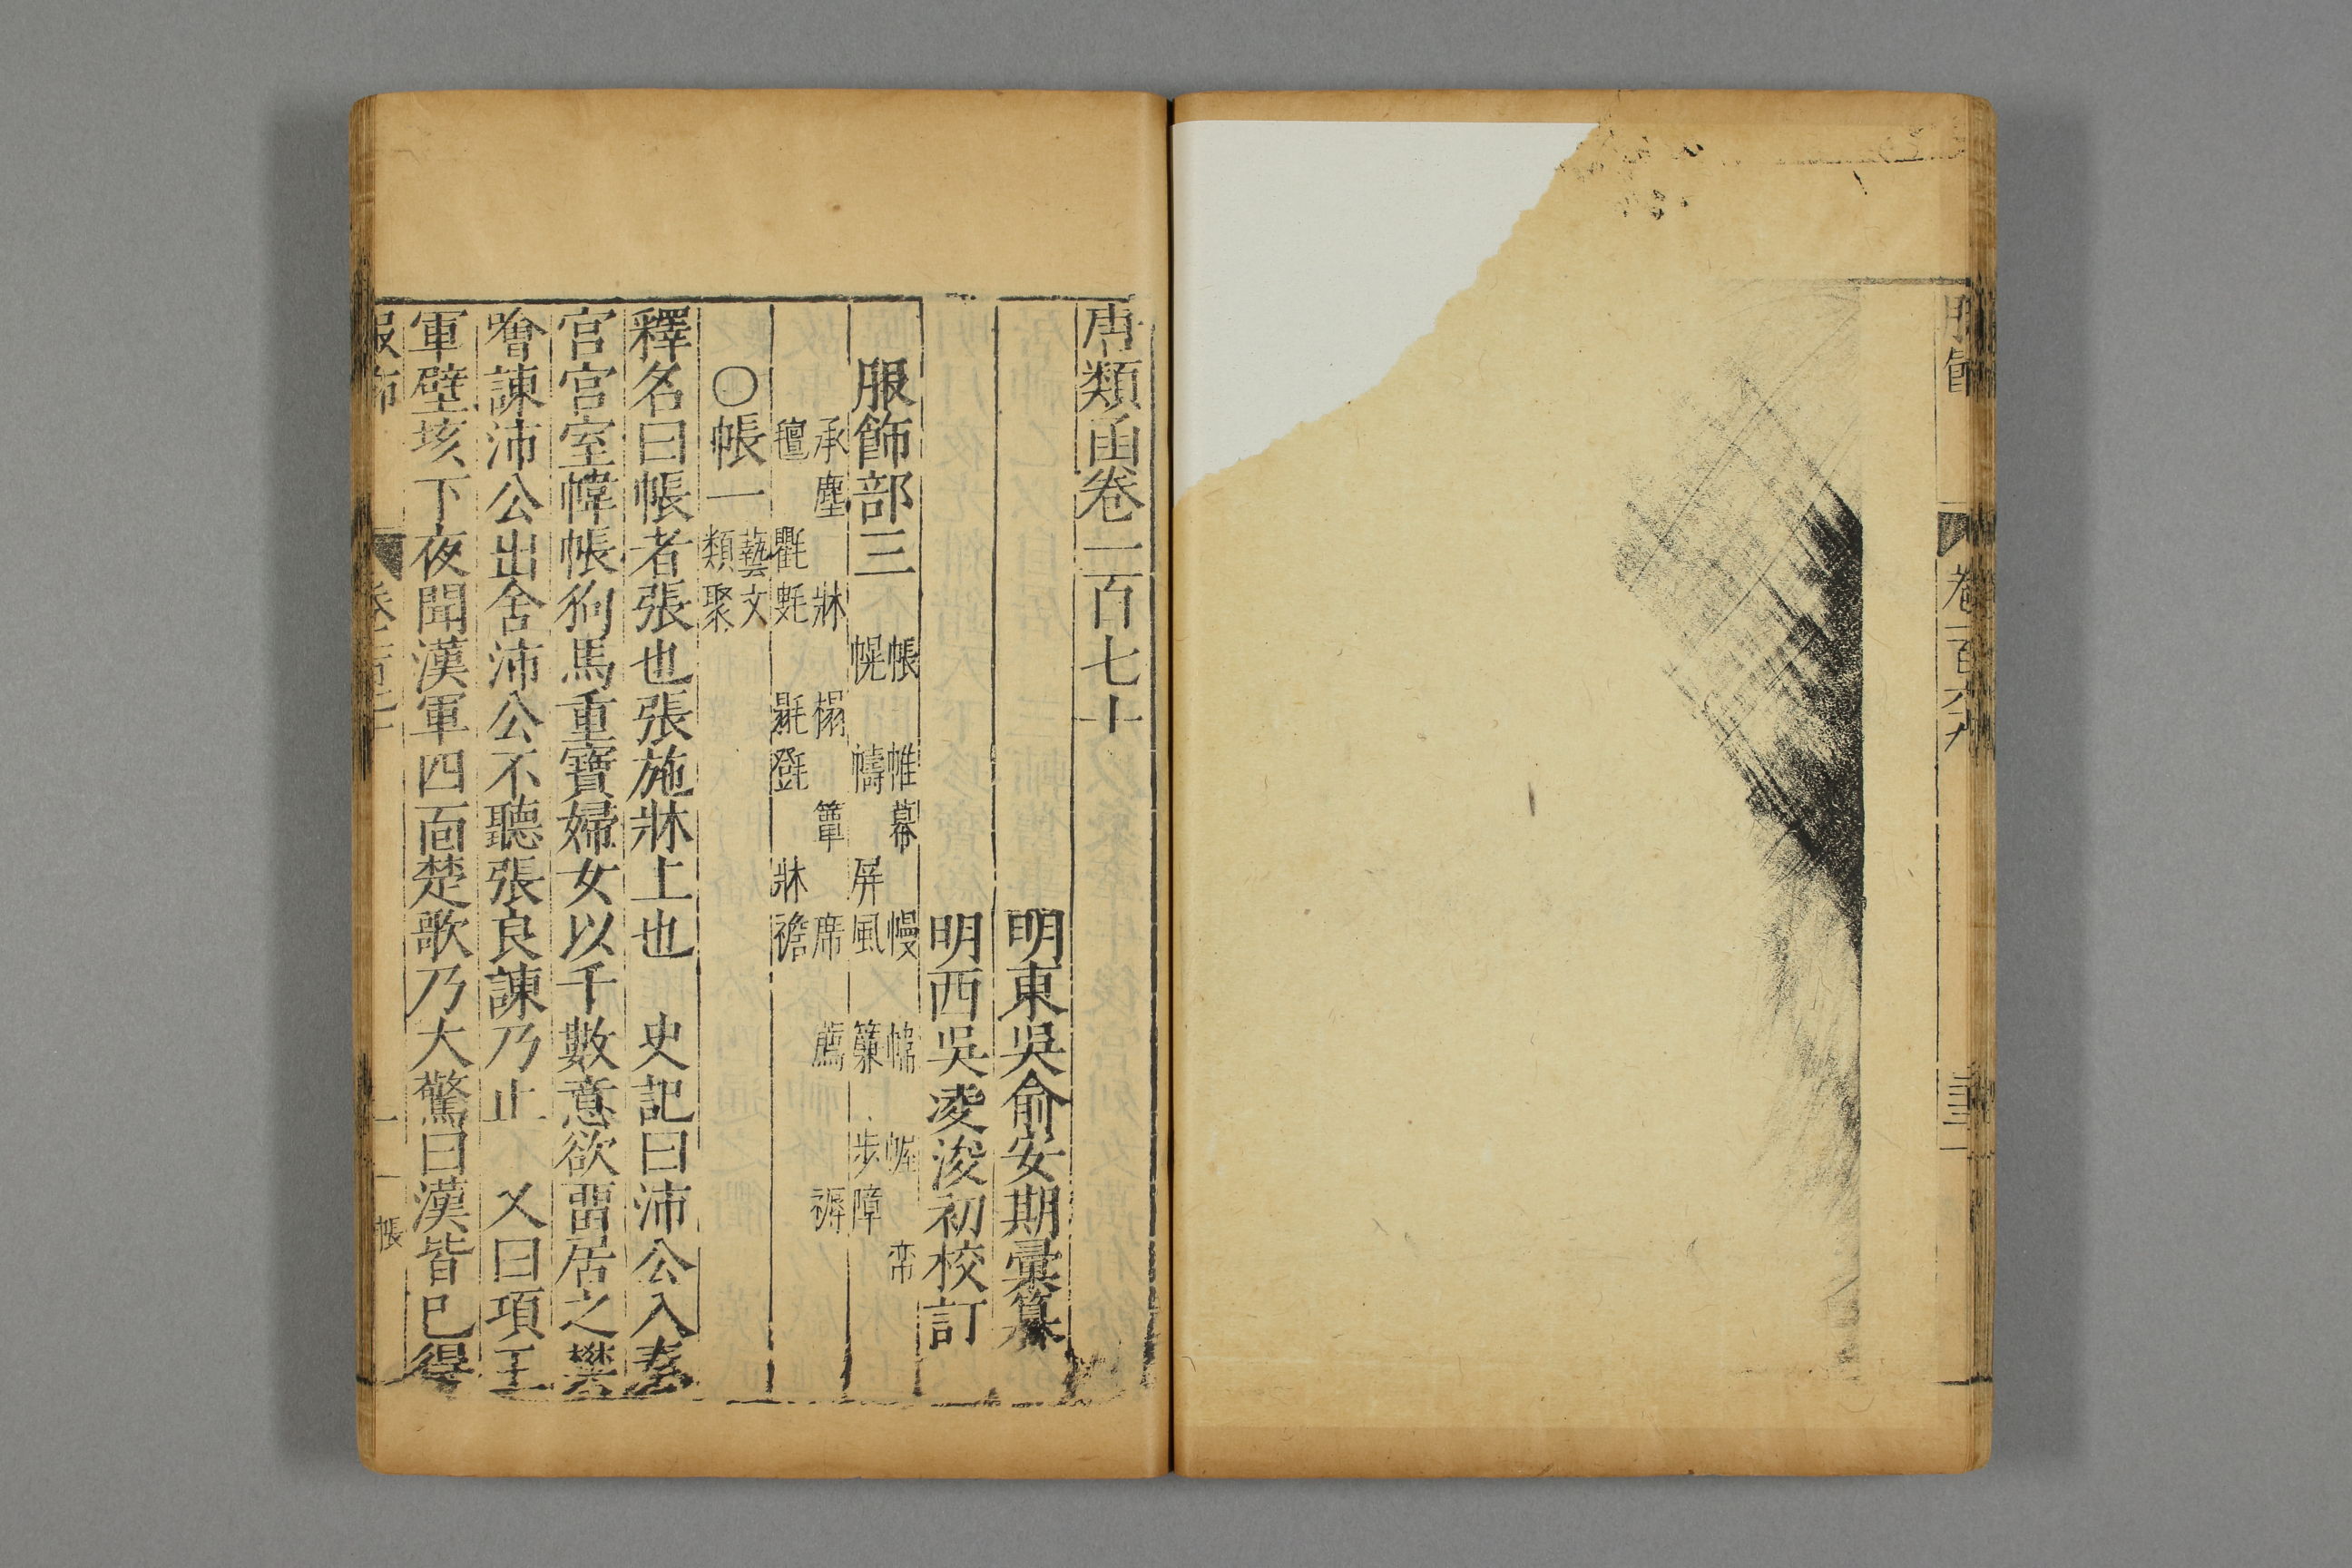 卷一百六九
唐類函卷一百七十
明東吳俞安期彙纂
明西吳凌浚初校訂
服飾部三
帳 帷幕 幔 幬 幄 帟
幌 幬 屏風 簾 步障
承塵 牀 榻 簟 席 薦 褥
氊 氍毹 毾㲪 牀襜
〇帳一
藝文
類聚
釋名曰帳者張也張施牀上也 史記曰沛公入秦
宮宮室幃帳狗馬重寶婦女以千數意欲畱居之樊
噲諫沛公出舍沛公不聽張良諫乃止 又曰項王
軍壁垓下夜聞漢軍四面楚歌乃大驚曰漢皆已得
服飾
帳